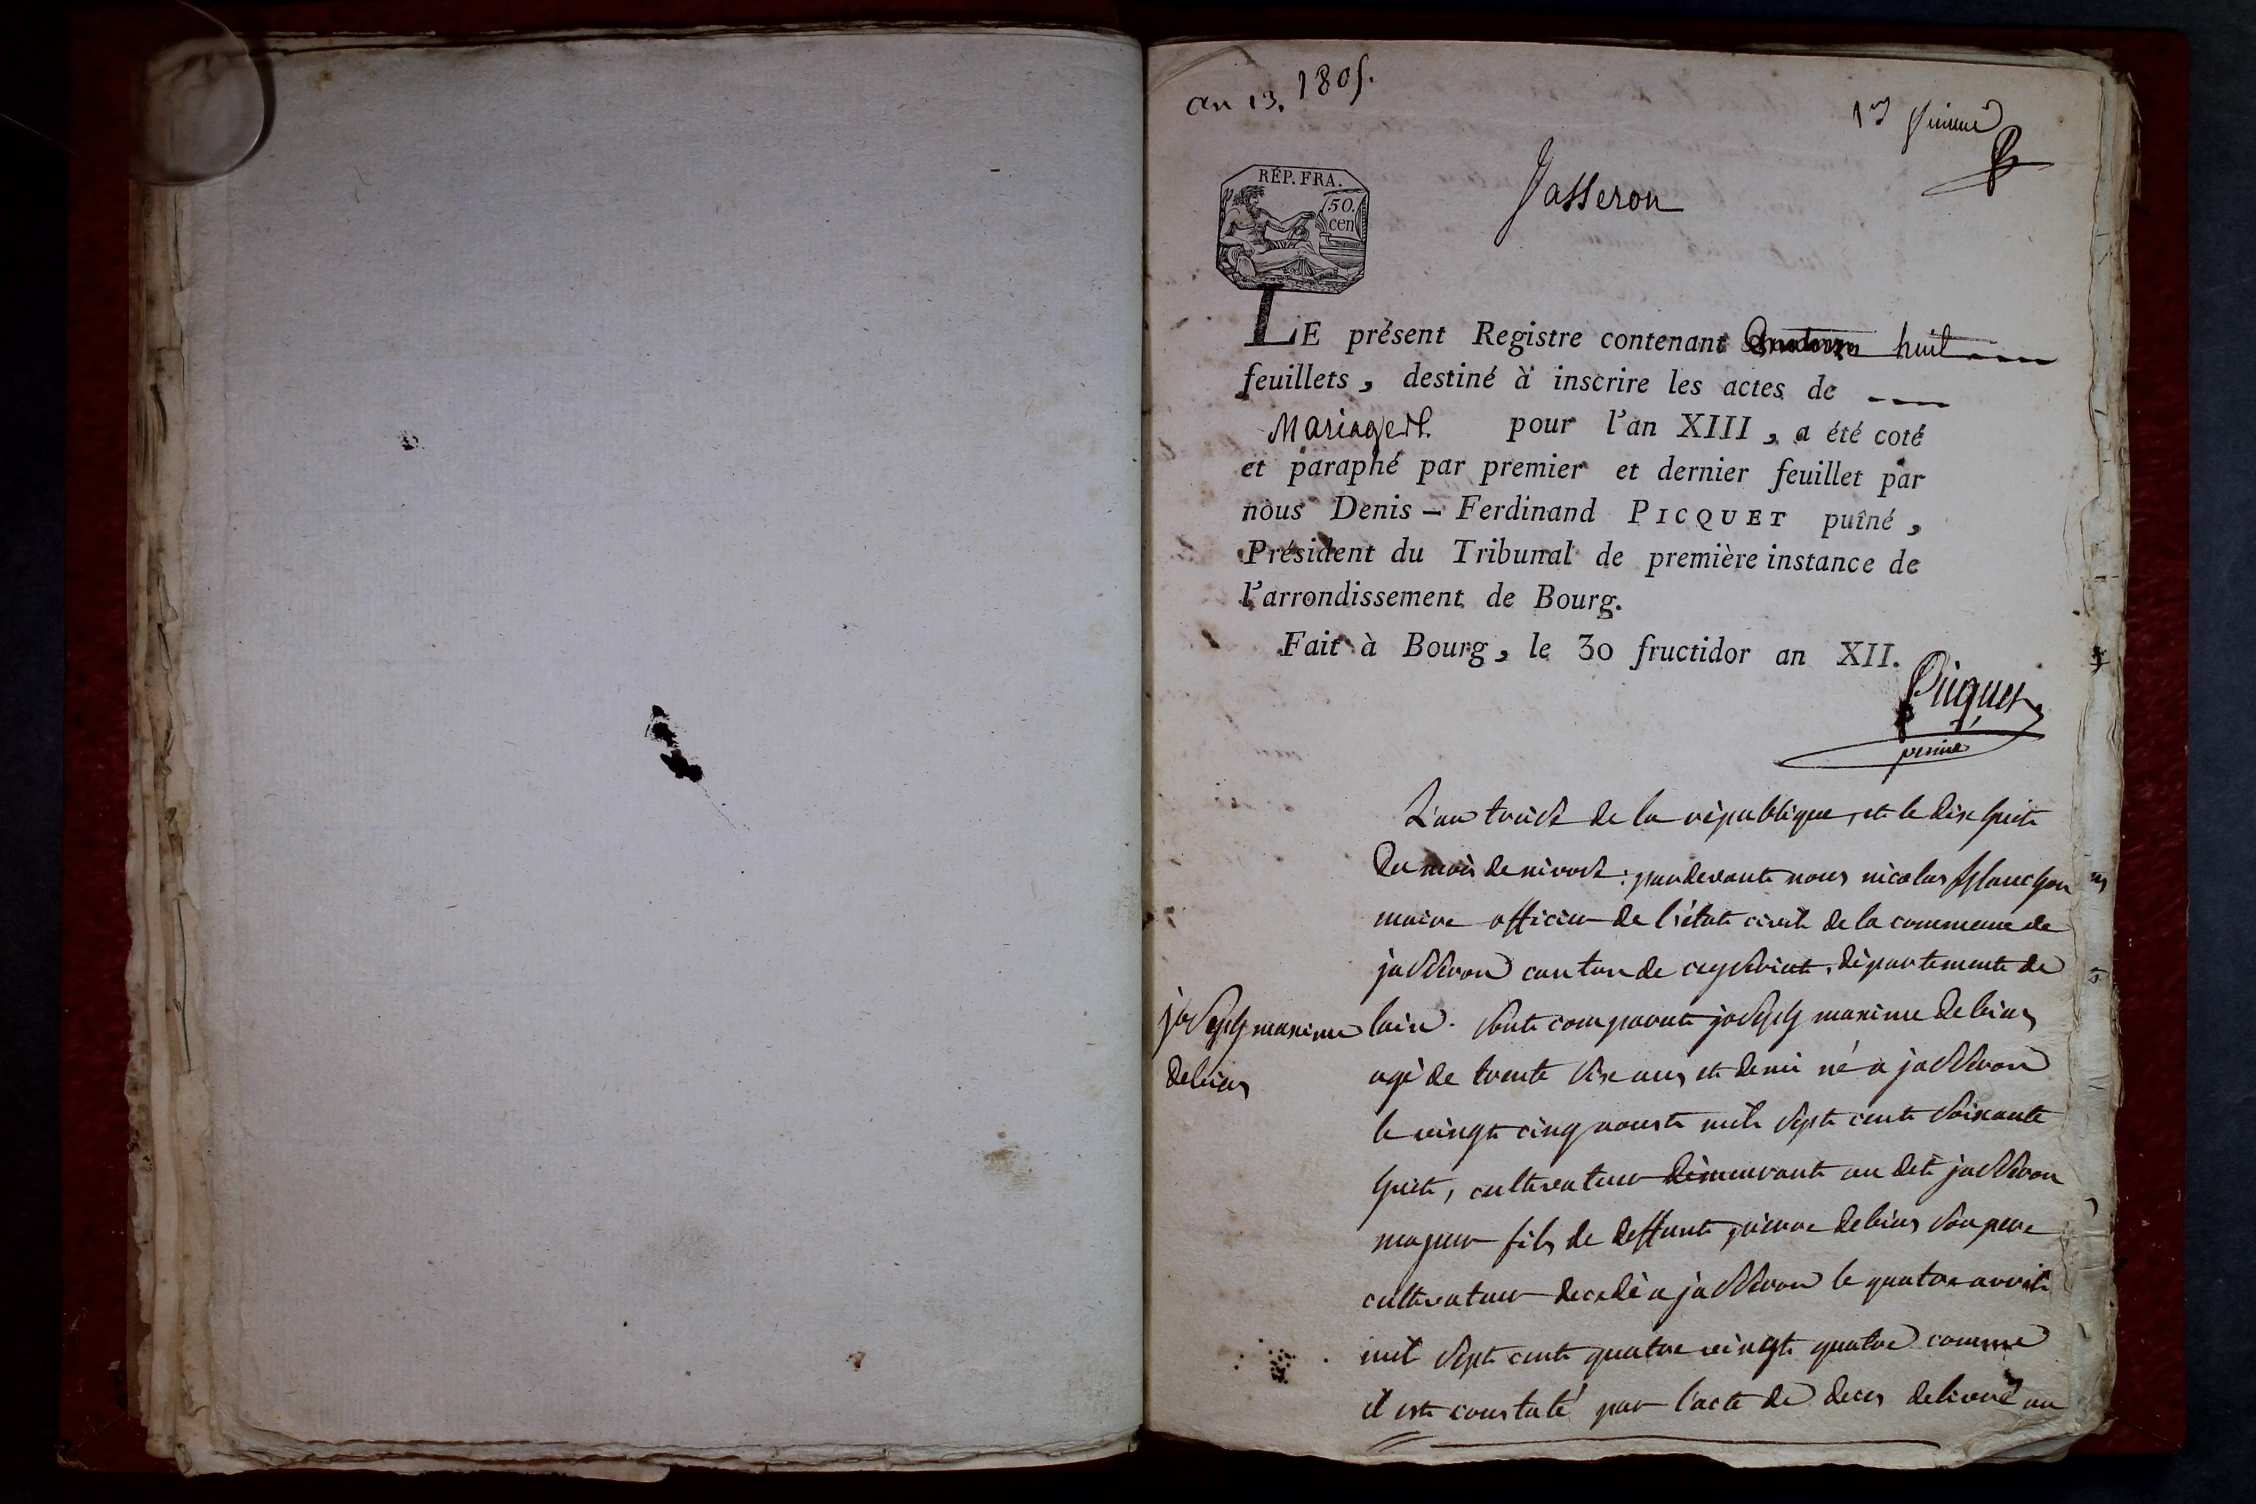 an 13. 1805.
1er
Jasseron
RÉP. FRA.
50.
cen
LE présent Registre contenant huit
feuillets, destiné à inscrire les actes de
Mariages pour l'an XIII, a été coté
et paraphé par premier et dernier feuillet par
nous Denis-Ferdinand PICQUET puîné,
Président du Tribunal de première instance de
l'arrondissement de Bourg.
Fait à Bourg, le 30 fructidor an XII.
Picquet
L'an treise de la republique, et le dix huit
du mois de nivose : pardevant nous nicolas
maire officier de l'état civil de la commune de
jasseron canton de ceyseriat, département de
joseph maxime
debias
lain. sont comparut joseph maxime debias
agé de trente six ans et demi né a jasseron
le vingt cinq aoust mil sept cent soixante
huit, cultivateur demeurant au dit jasseron
majeur fils de deffunt pierre debias son pere
cultivateur decedé a jasseron le quatre avril
mil sept cent quatre vingt quatre comme
il est constaté par l'acte de deces delivré au